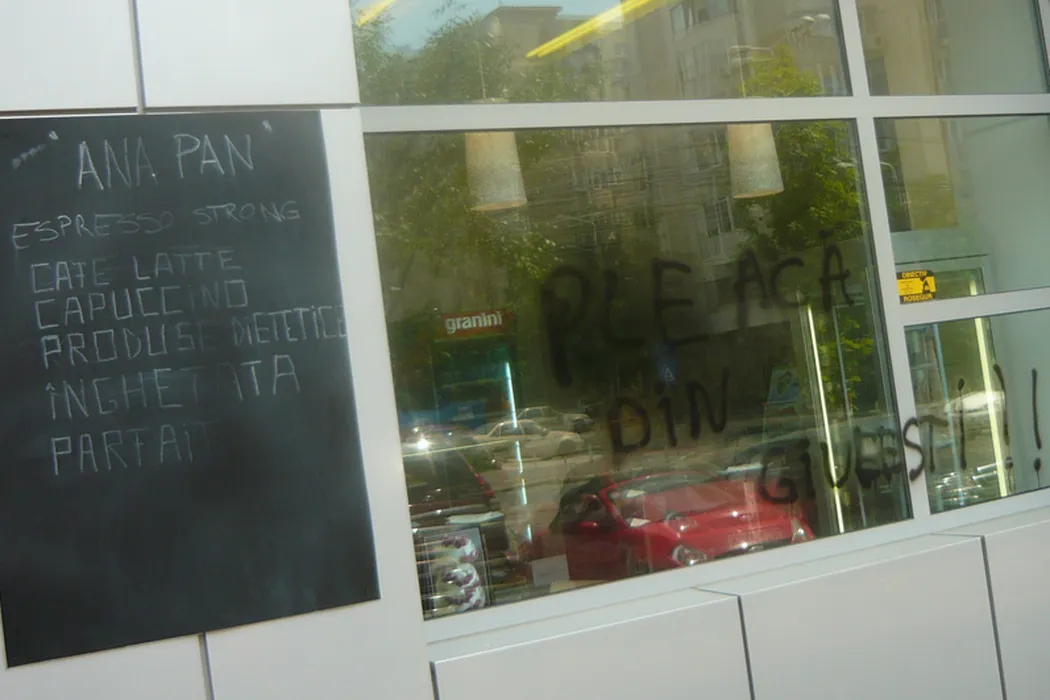 "ANA PAN"
ESPRESSO STRONG
CAFE LATTE
CAPUCCINO
PRODUSE DIETETICE
ÎNGHEȚATA
PARFAIT
granini
PLEACĂ
DIN
GIULEȘTI!!!